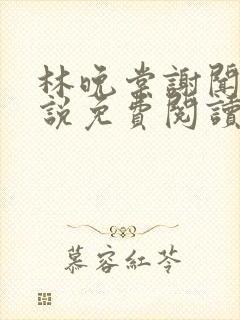 林晚棠謝聞
說免費閱讀
慕容紅苓